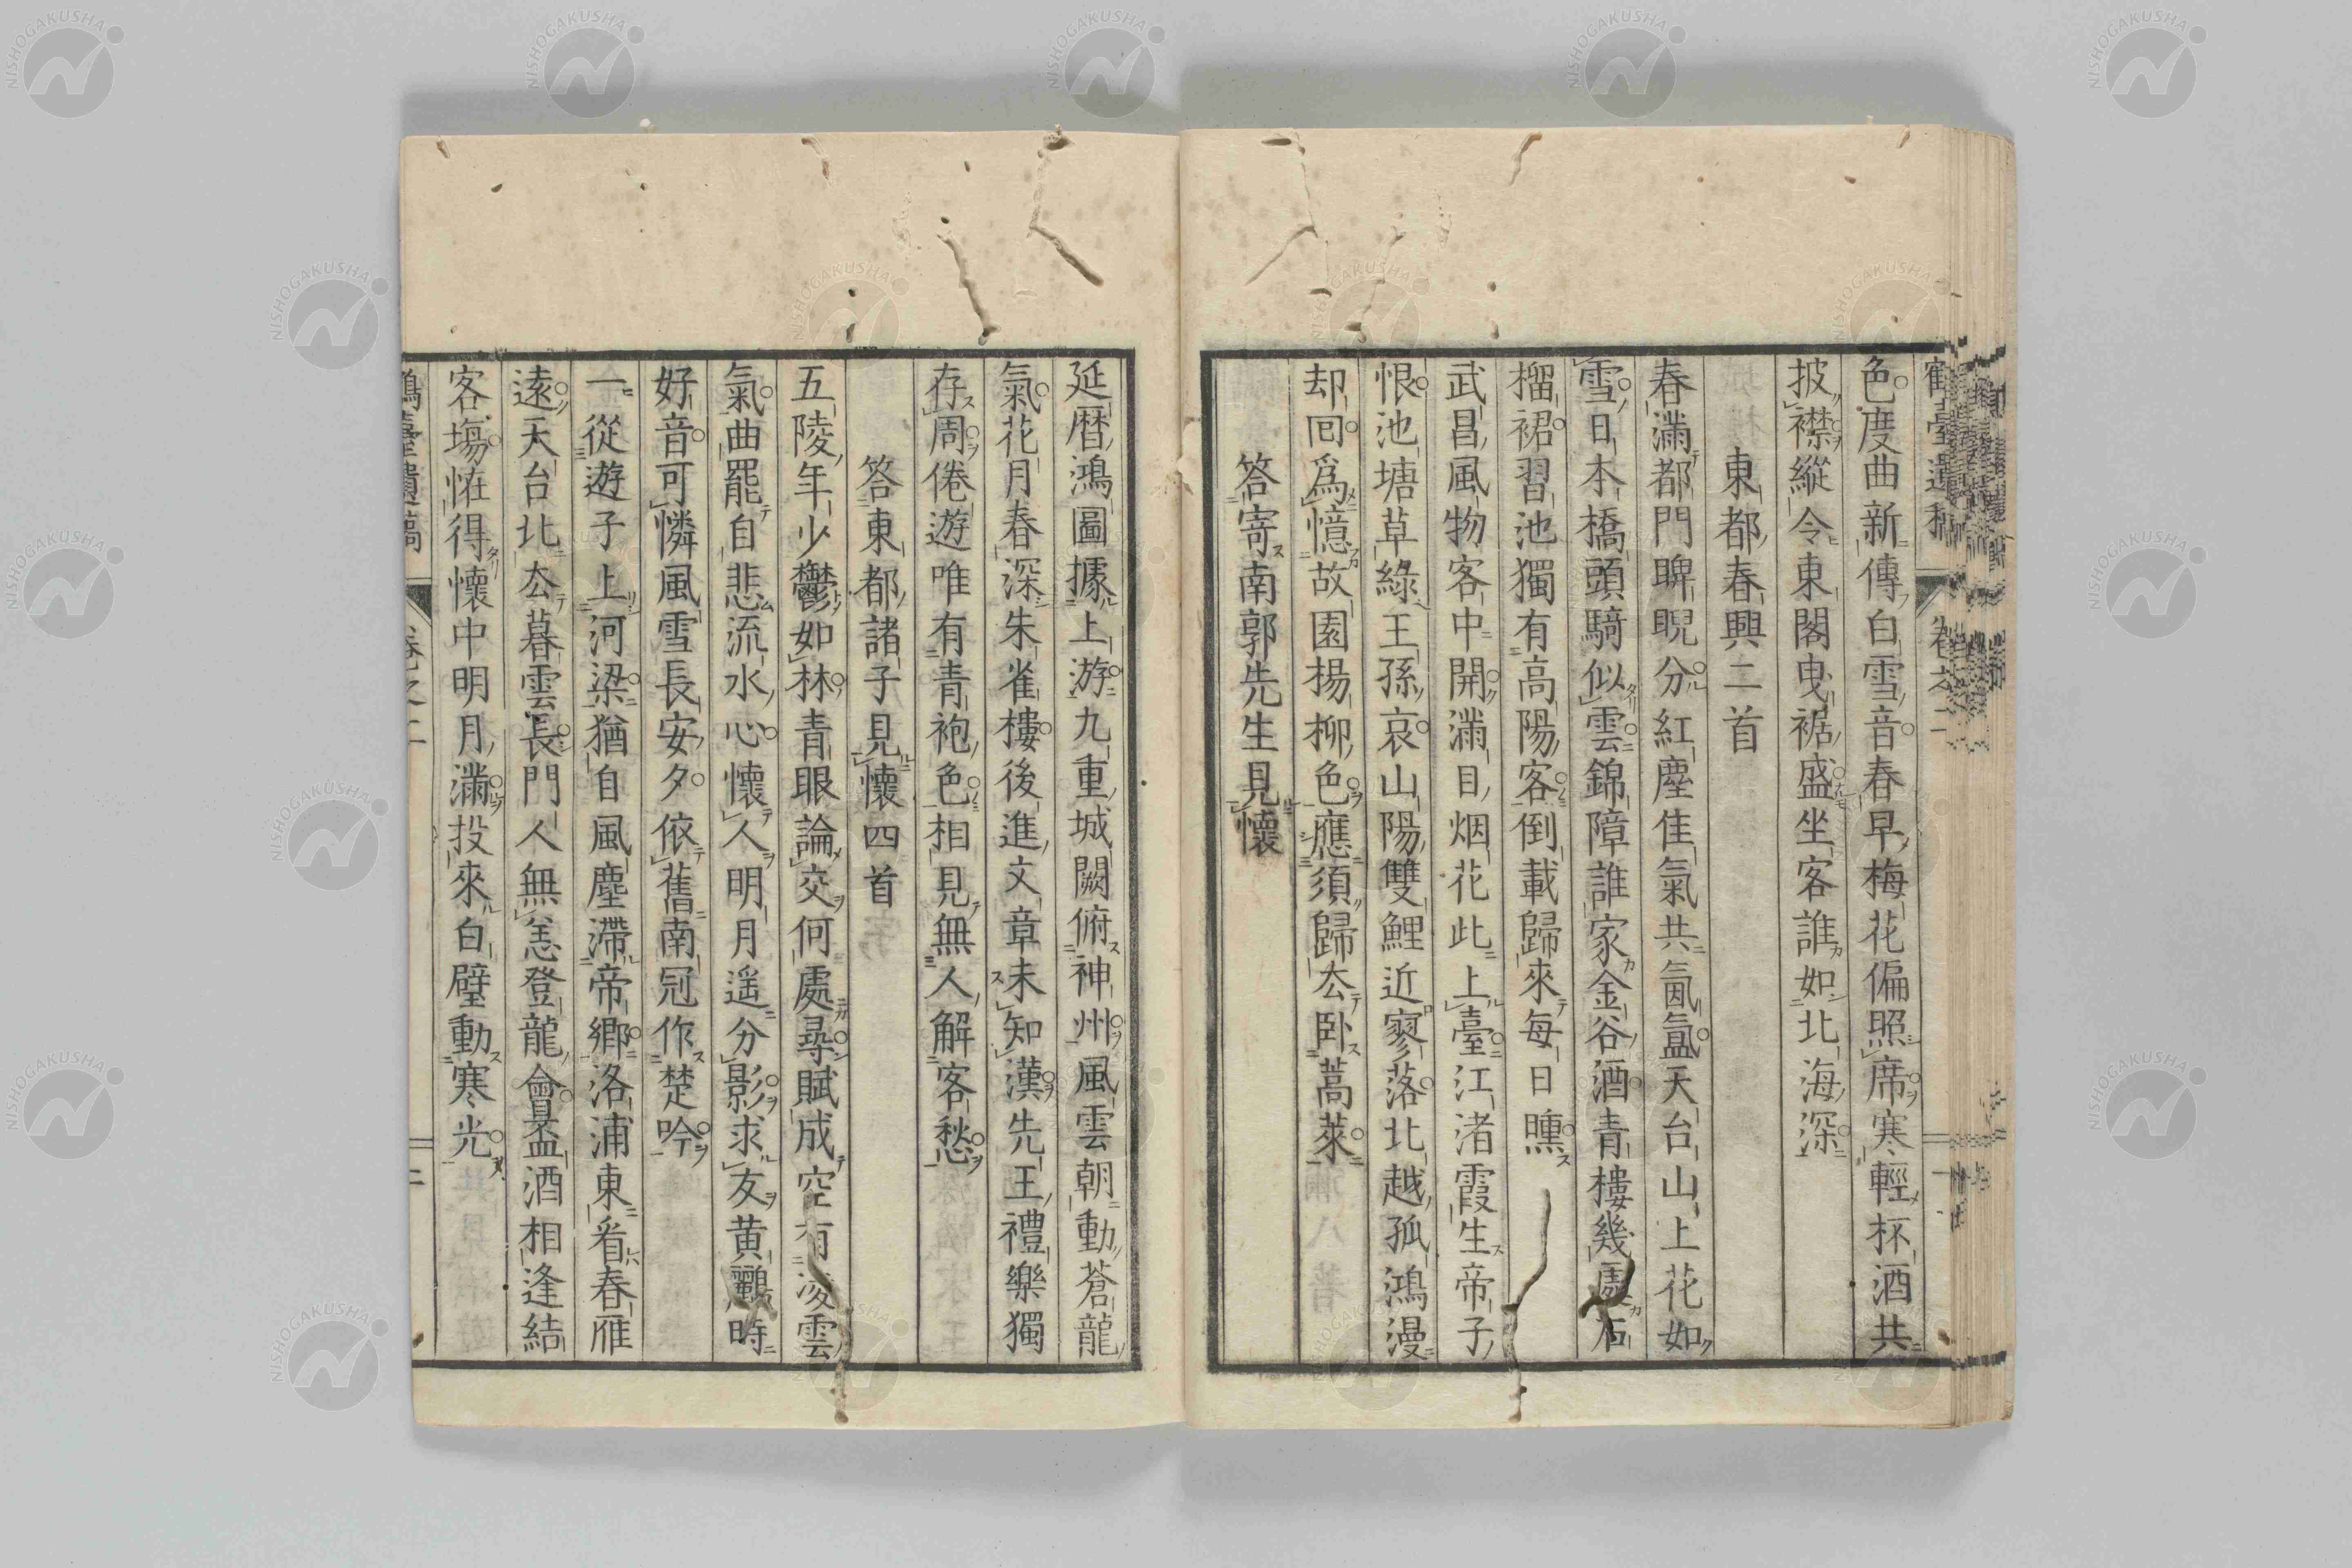 色度曲新傳白雪音春早梅花偏照席寒輕杯酒共
披襟縱令東閣曳裾盛坐客誰如北海深
東都春興二首
春滿都門睥睨分紅塵佳氣共氤氳天台山上花如
雪日本橋頭騎似雲錦障誰家金谷酒青樓幾處石
榴裙習池獨有高陽客倒載歸來每日曛
武昌風物客中開滿目烟花此上臺江渚霞生帝子
恨池塘草綠王孫哀山陽雙鯉近寥落北越孤鴻漫
却回爲憶故園楊柳色應須歸去卧蒿萊
答寄南郭先生見懷
延曆鴻圖據上游九重城闕俯神州風雲朝動蒼龍
氣花月春深朱雀樓後進文章未知漢先王禮樂獨
存周倦遊唯有青袍色相見無人解客愁
答東都諸子見懷四首
五陵年少鬱如林青眼論交何處尋賦成空有凌雲
氣曲罷自悲流水心懷人明月遥分影求友黃鸝時
好音可憐風雪長安夕依舊南冠作楚吟
一從遊子上河梁猶自風塵滯帝鄉洛浦東看春雁
遠天台北去暮雲長門人無恙登龍會盟酒相逢結
客場恠得懷中明月滿投來白璧動寒光
鶴臺遺稿 卷之二 二
鶴臺遺稿 卷之二